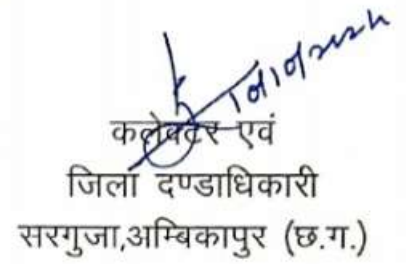 कलेक्टर एवं
जिला दण्डाधिकारी
सरगुजा,अम्बिकापुर (छ.ग.)